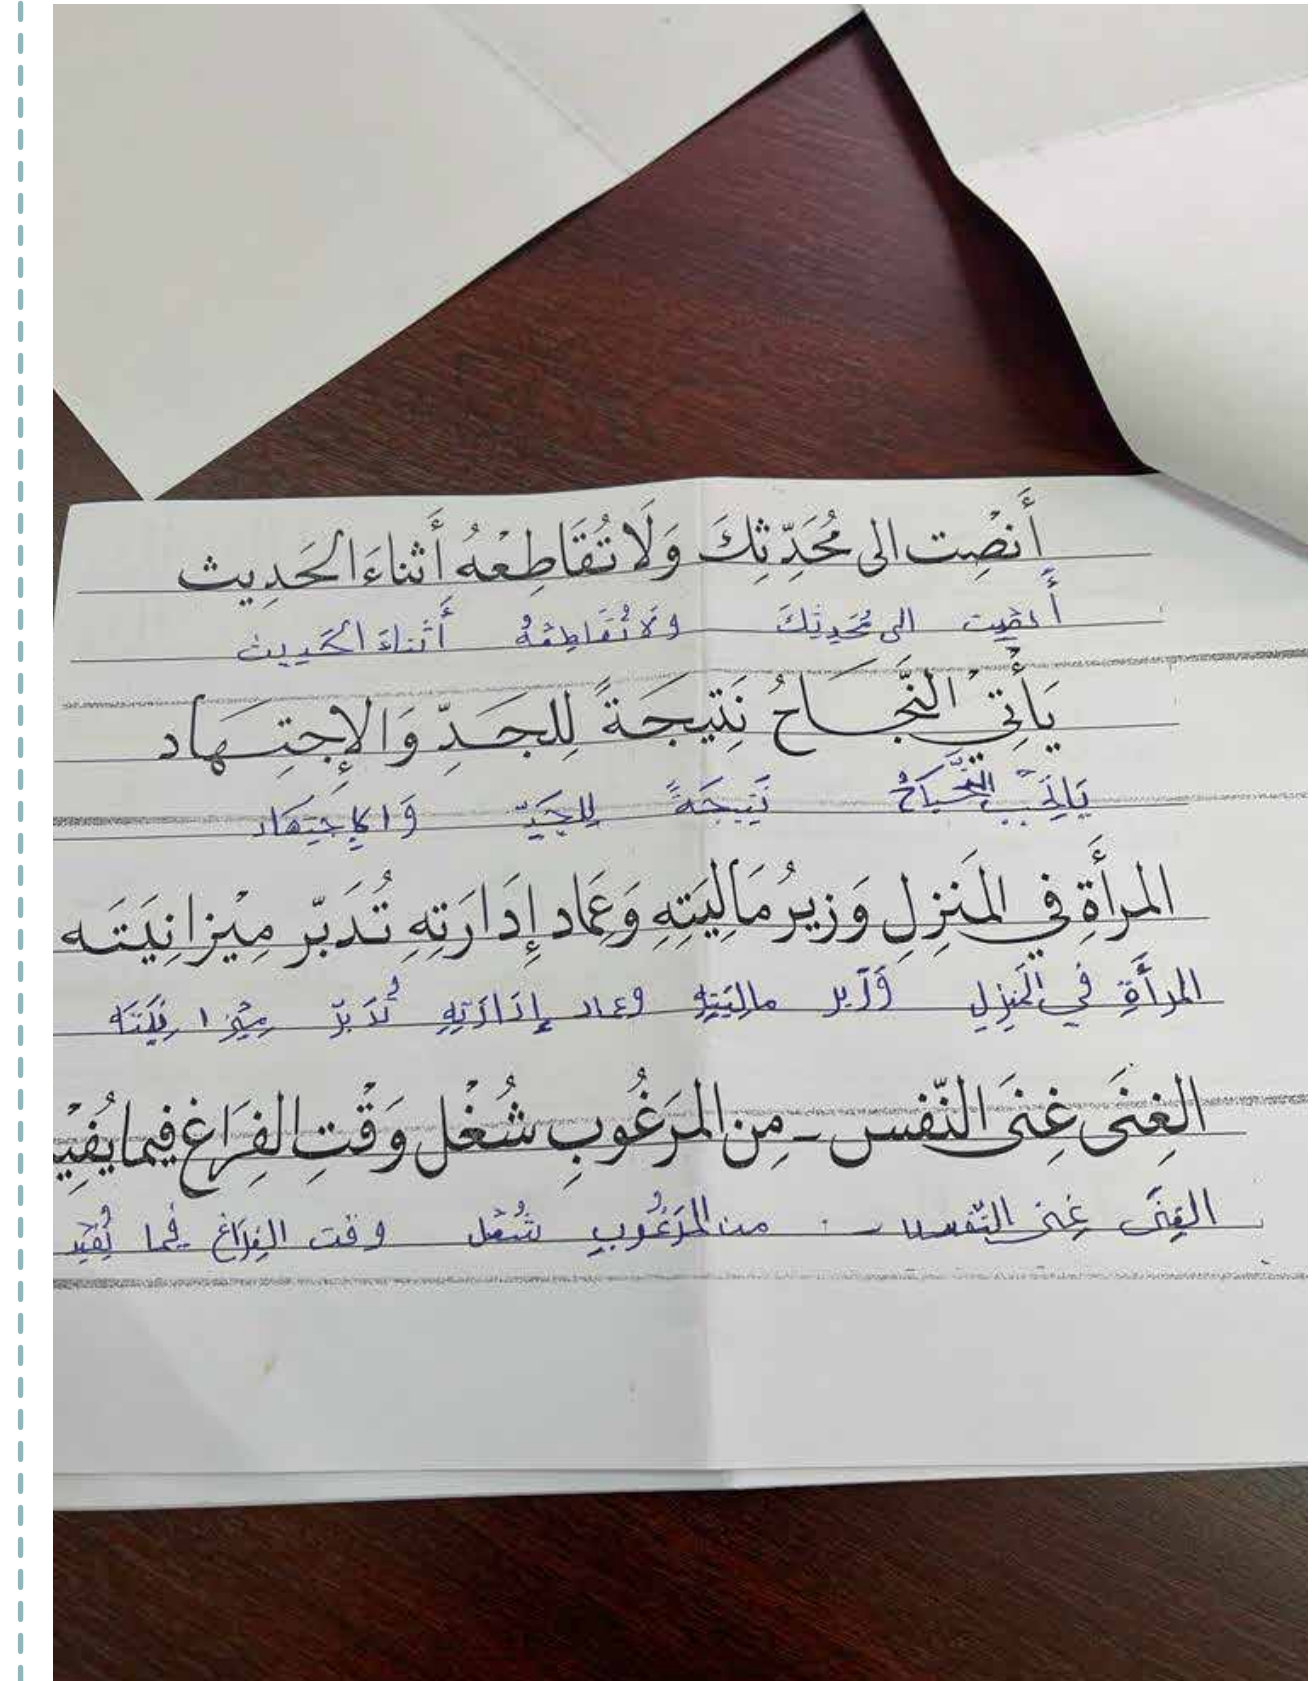 أَنصِت الى مُحَدِّثِكَ وَلَا تُقَاطِعْهُ أَثناءَ الحَدِيث
أَنصِت الى مُحَدِثِكَ ولَا تُقَاطِعْهُ أَثناءَ الحَدِيث
يَأْتِي النَّجَاحُ نَتِيجَةً لِلجَدِّ وَالإِجتِهَاد
النَّجَاحُ نَتِيجَةً لِلجَدِّ وَالإِجتِهَاد
المرأَةِ في المَنزِلِ وَزيرُ مَالِيَتِهِ وَعِمَاد إِدَارَتِهِ تُدَبّر مِيْزانِيَتَه
المرأَةِ في المَنزِلِ مالِيَتِهِ وعماد إِدَارَتِهِ تُدَبّر مِيْزا نِيَتَه
الغِنَى غِنَى النّفس - مِن المَرغُوبِ شُغْل وَقْتِ الفِرَاغ فيما يُفِيْ
الغِنَى غِنَى النّفس - من المَرغُوبِ شُغْل وقت الفِرَاغ فيما